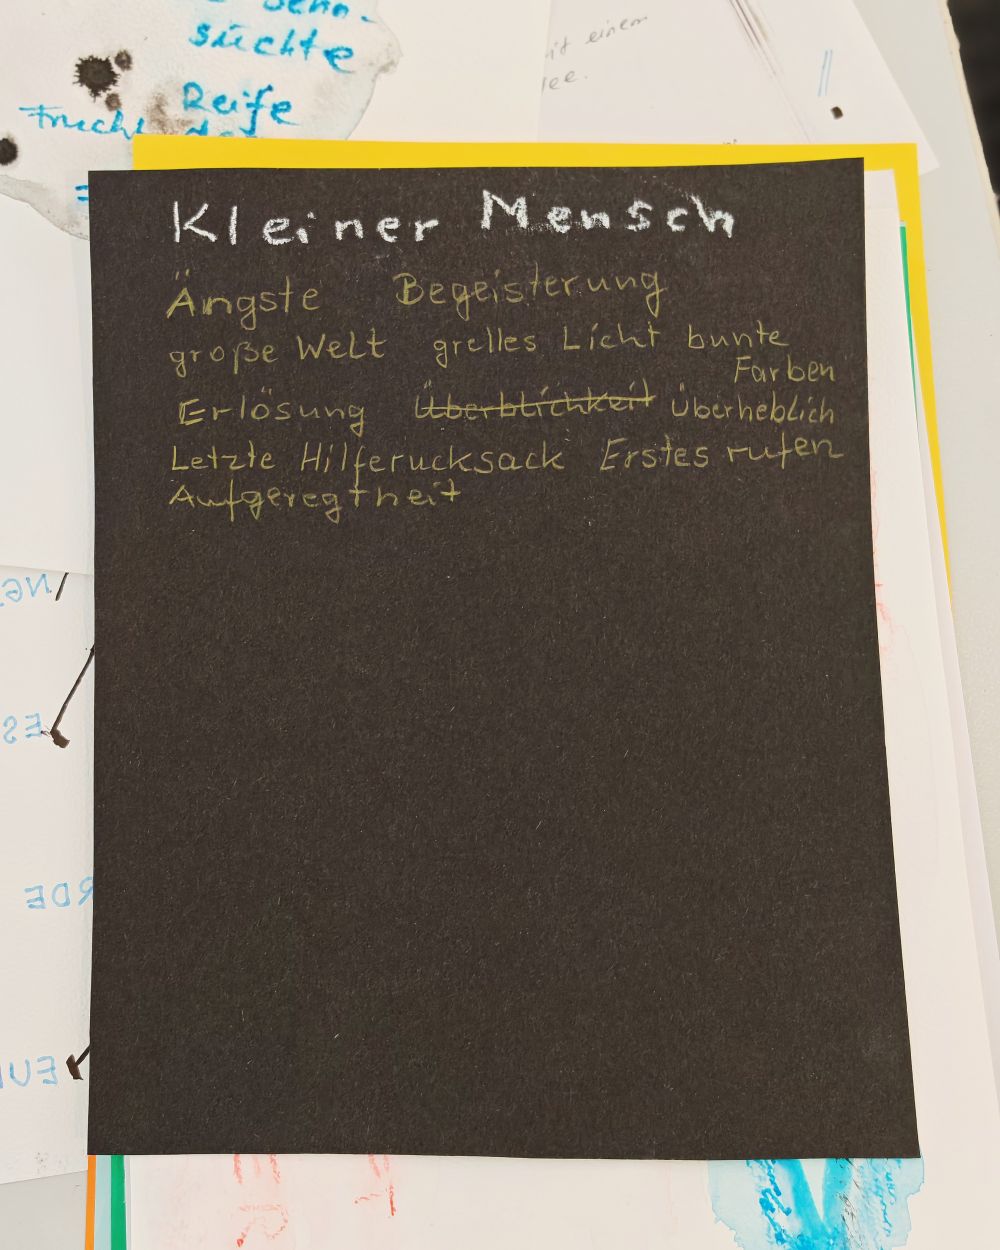 süchte
Reife
mit einem
Kleiner Mensch
Ängste Begeisterung
große Welt grelles Licht bunte
Farben
Erlösung Überblichkeit Überheblich
Letzte Hilferucksack Erstes rufen
Aufgeregtheit